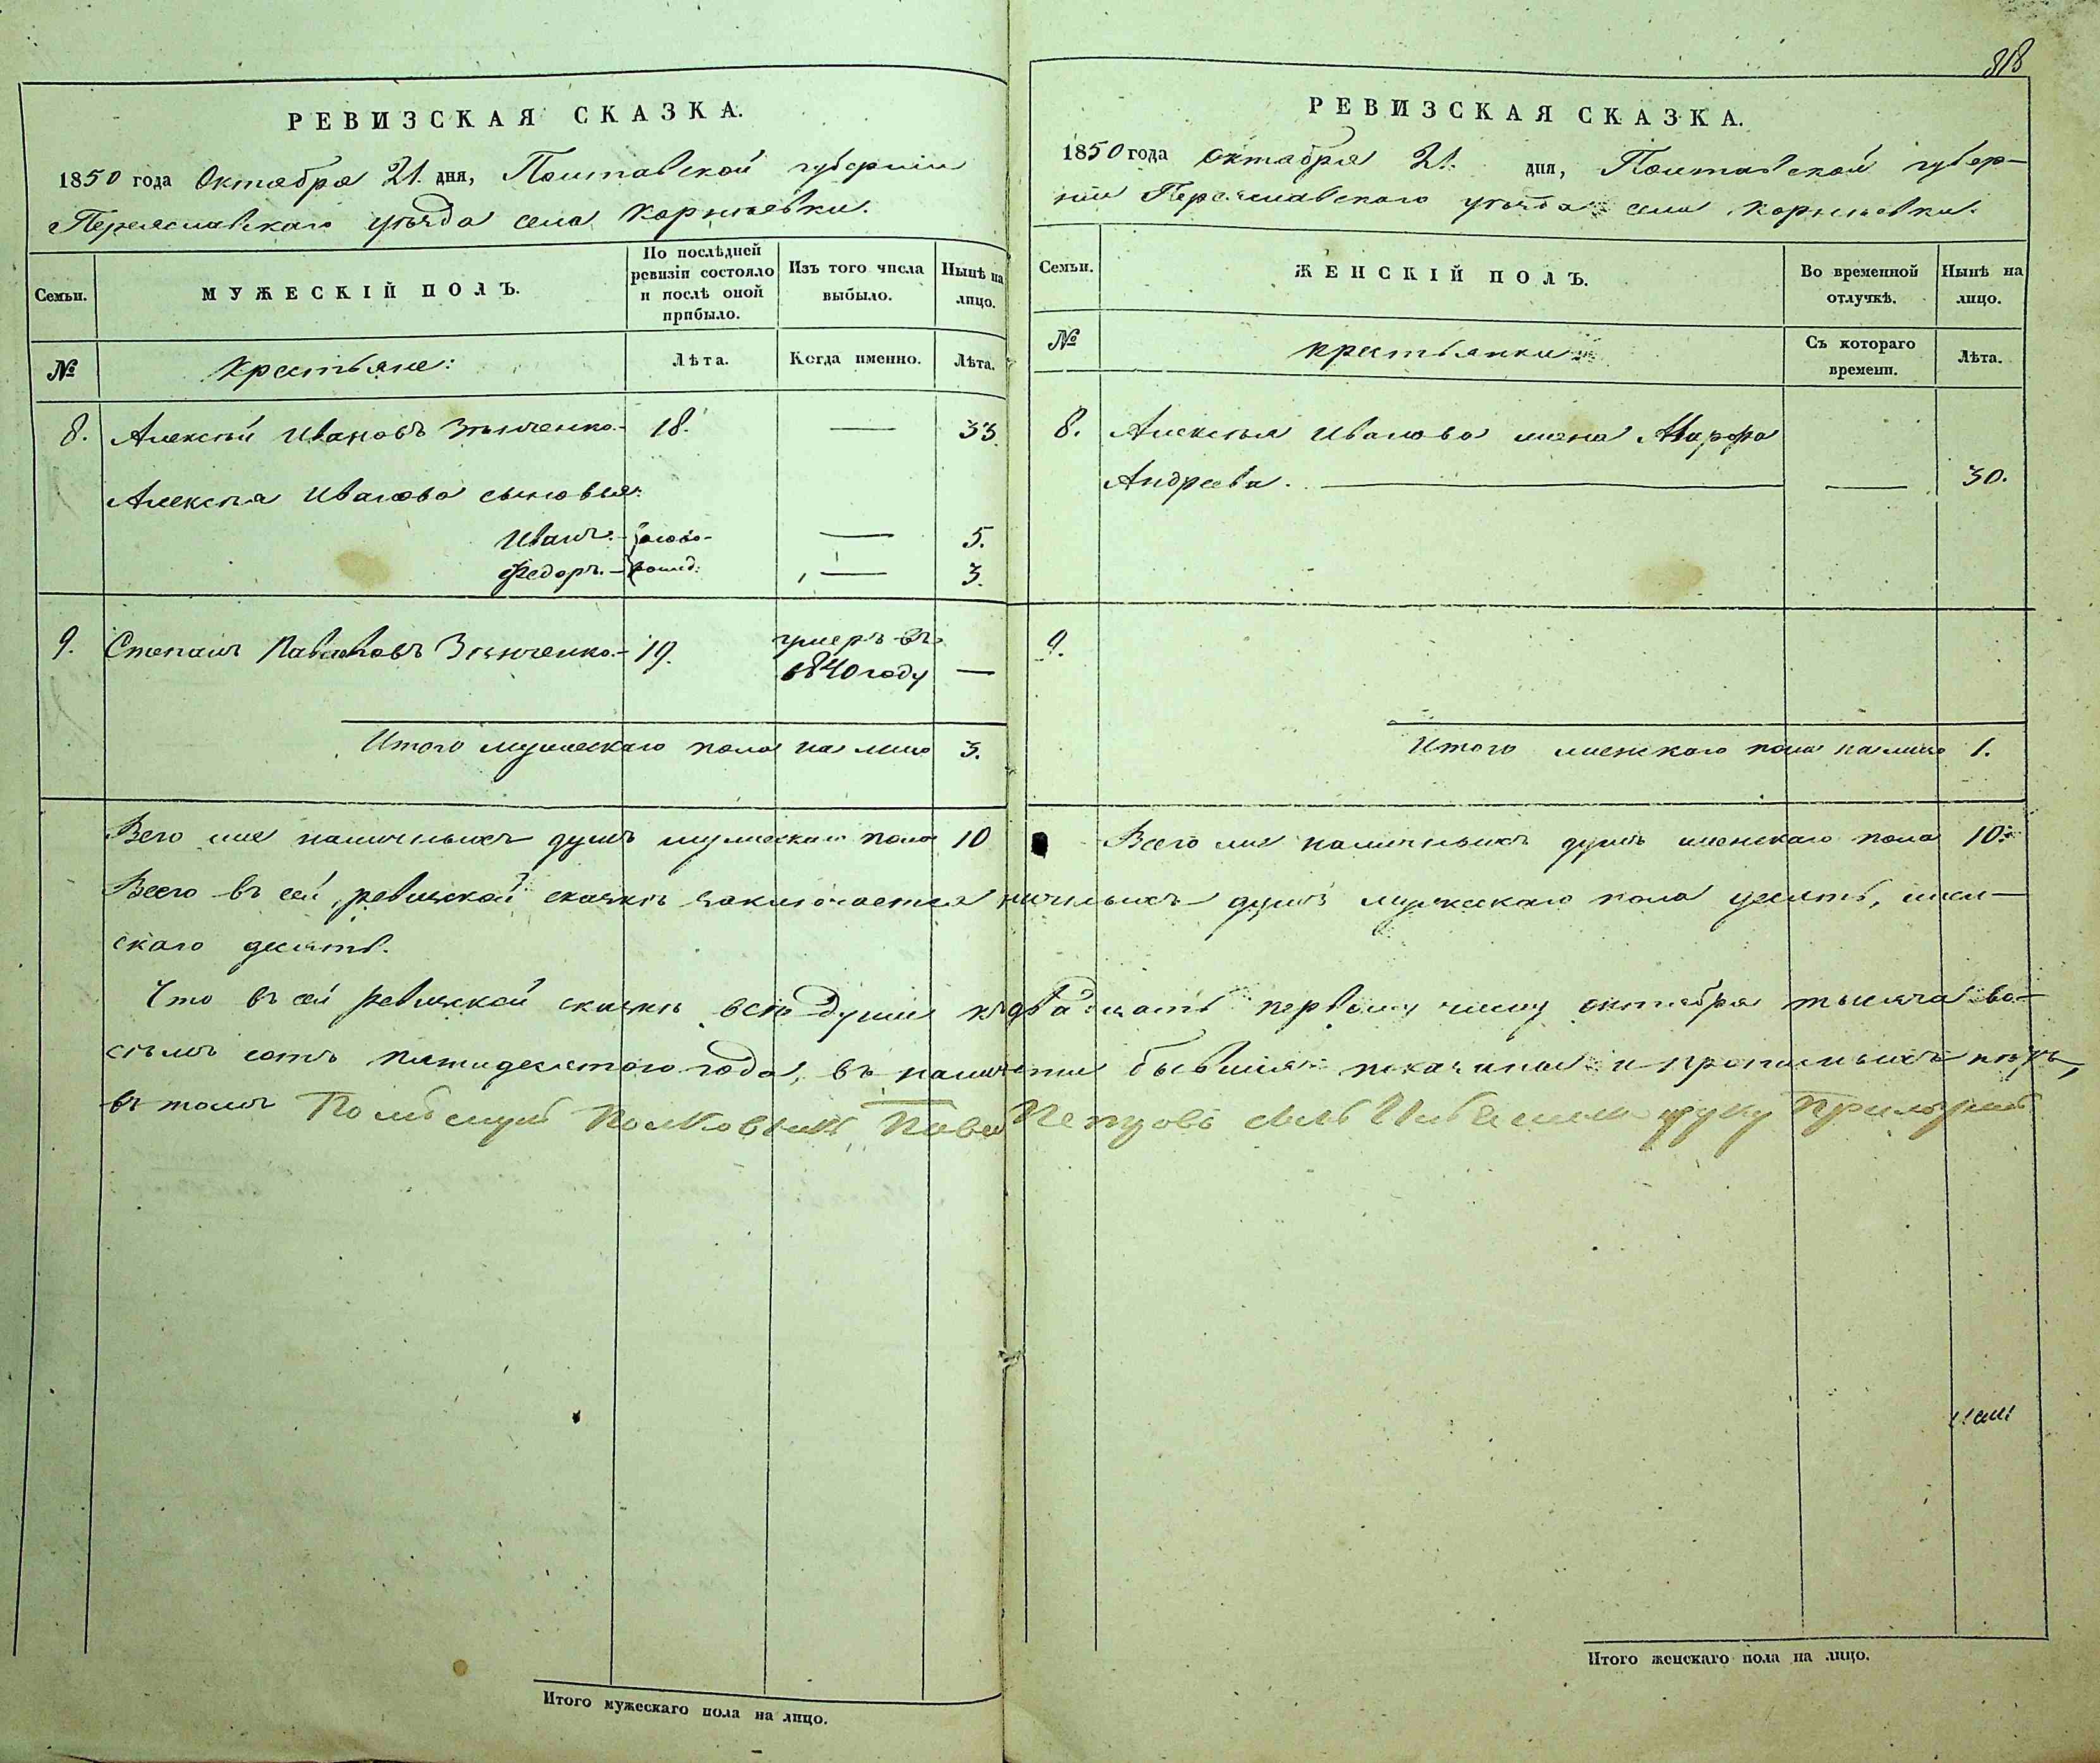 РЕВИЗСКАЯ СКАЗКА.
1850 года Октября 21. дня, Полтавской губерніи
Переяславскаго уѣзда села Корнѣевки.
Семьи.
МУЖЕСКІЙ ПОЛЪ.
По послѣдней ревизіи состояло и послѣ оной прибыло.
Изъ того числа выбыло.
Нынѣ на лицо.
№
Крестьяне:
Лѣта.
Когда именно.
Лѣта.
8. Алексѣй Ивановъ Зѣнченко.- 18. — 33.
Алексѣя Иванова сыновья:
Иванъ.- ново- — 5.
Федоръ.- рожд: — 3.
9. Степанъ Павловъ Зѣнченко.- 19. умеръ въ
1840 году —
Итого мужескаго пола на лицо 3.
Всего же наличныхъ душъ мужескаго пола 10
318
РЕВИЗСКАЯ СКАЗКА.
1850 года Октября 21. дня, Полтавской губер-
ніи Переяславскаго уѣзда села Корнѣевки.
Семьи.
ЖЕНСКІЙ ПОЛЪ.
Во временной отлучкѣ.
Нынѣ на лицо.
№
Крестьянки
Съ котораго времени.
Лѣта.
8. Алексѣя Иванова жена Марфа
Андреева. — — 30.
9.
Итого женскаго пола на лицо 1.
Всего же наличныхъ душъ женскаго пола 10.
Всего въ сей ревизской сказкѣ заключается наличныхъ душъ мужескаго пола десять, жен-
скаго десять.
Что въ сей ревизской сказкѣ всѣ души къ двадцать первому числу октября тысяча во-
сѣмъ сотъ пятидесятого года, въ наличности бывшія показаны и прописныхъ нѣтъ,
въ томъ Помѣщикъ Полковникъ Павелъ Петровъ сынъ руку приложилъ
Итого мужескаго пола на лицо.
Итого женскаго пола на лицо.